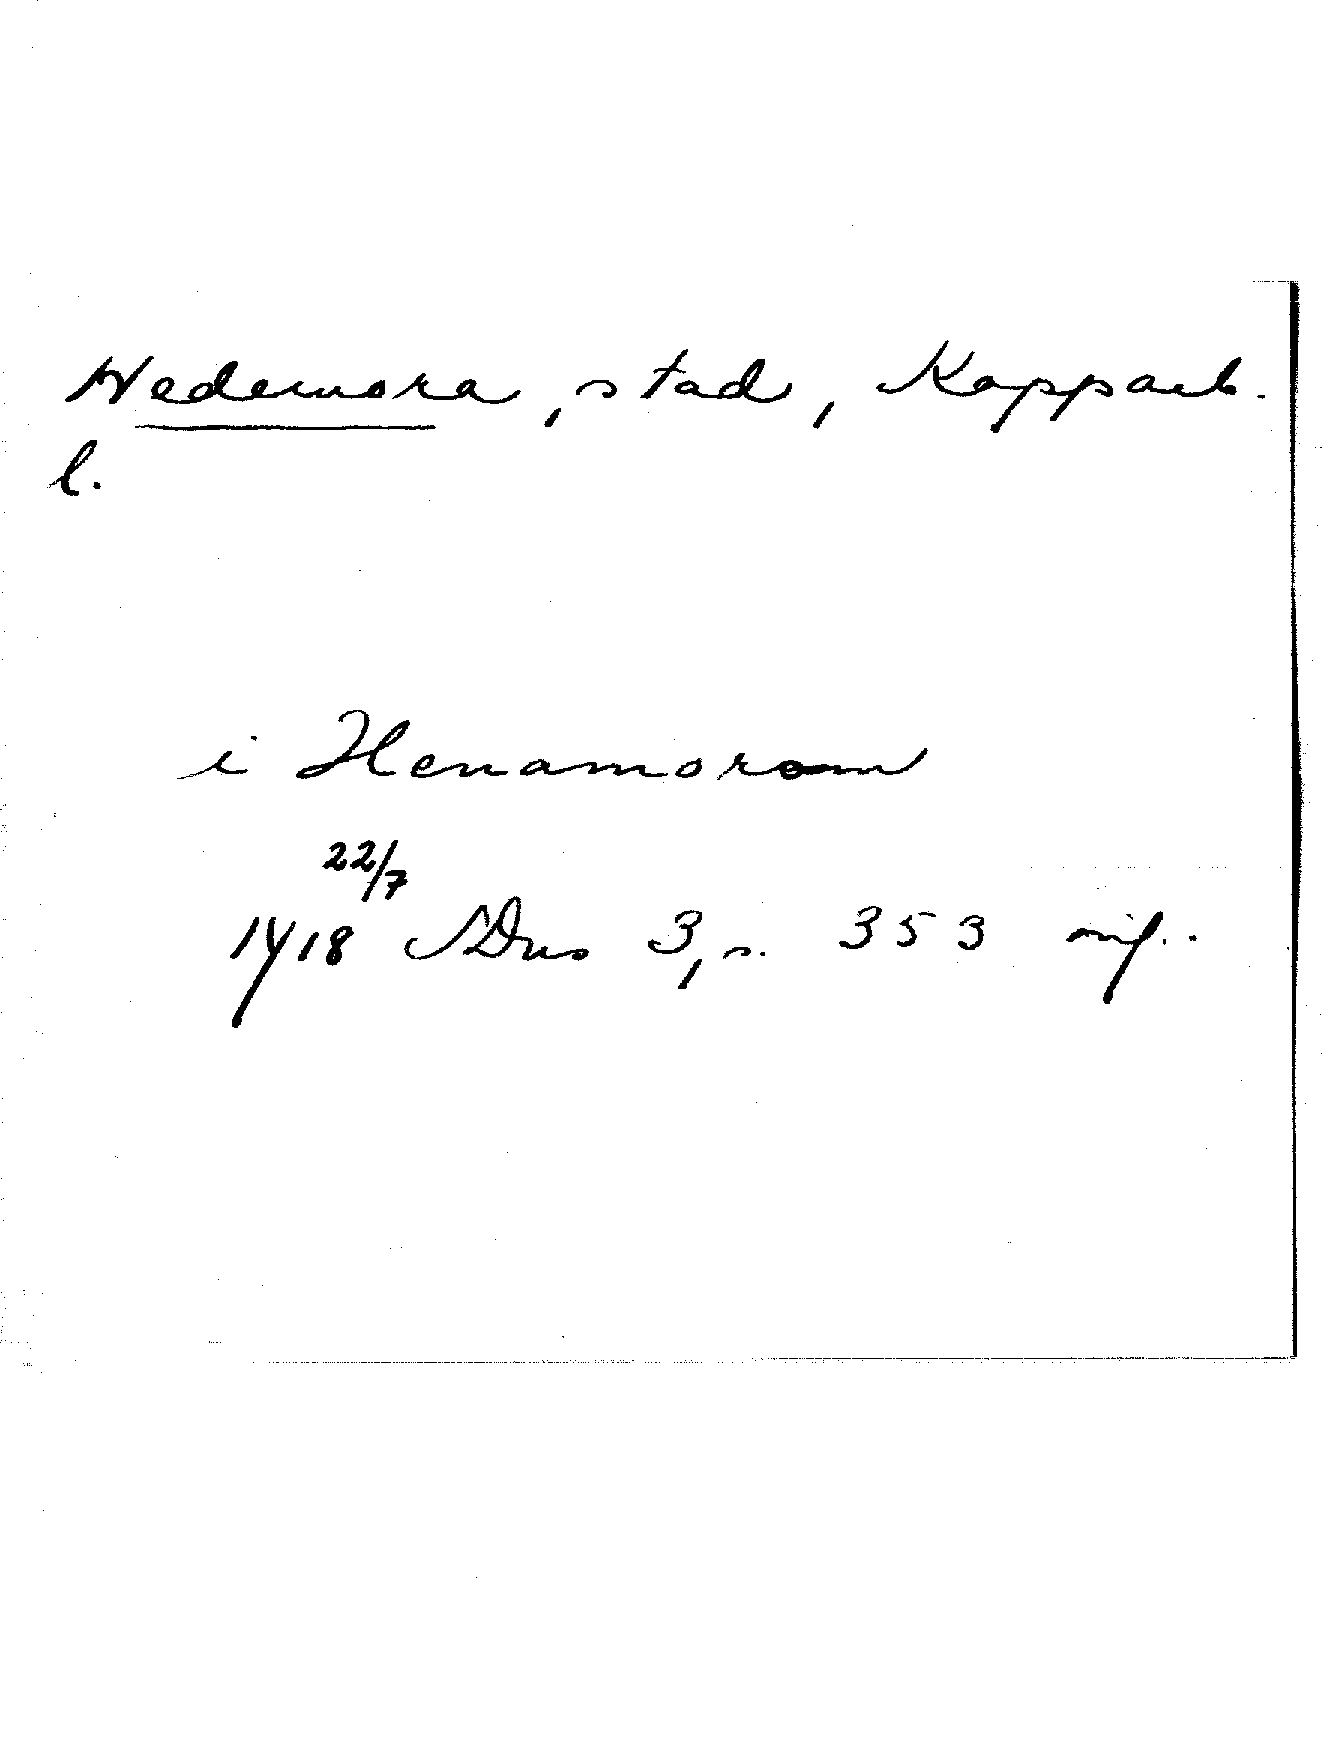 Hedemora, stad, Kopparb.
l.
i Henamorom
22/7
1418 SDns 3, s. 353 orig..